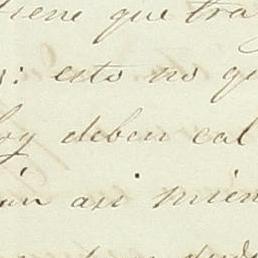 tiene que tra
s: esto no qu
hoy deben cal
ún así mien